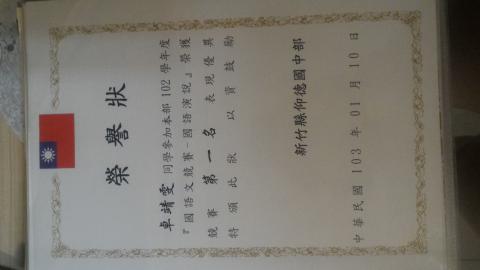 榮譽狀
卓靖雯同學參加本部102學年度
『國語文競賽-國語演說』榮獲
競賽 第一名 表現優異
特頒此狀 以資鼓勵
新竹縣仰德國中部
中華民國103年01月10日